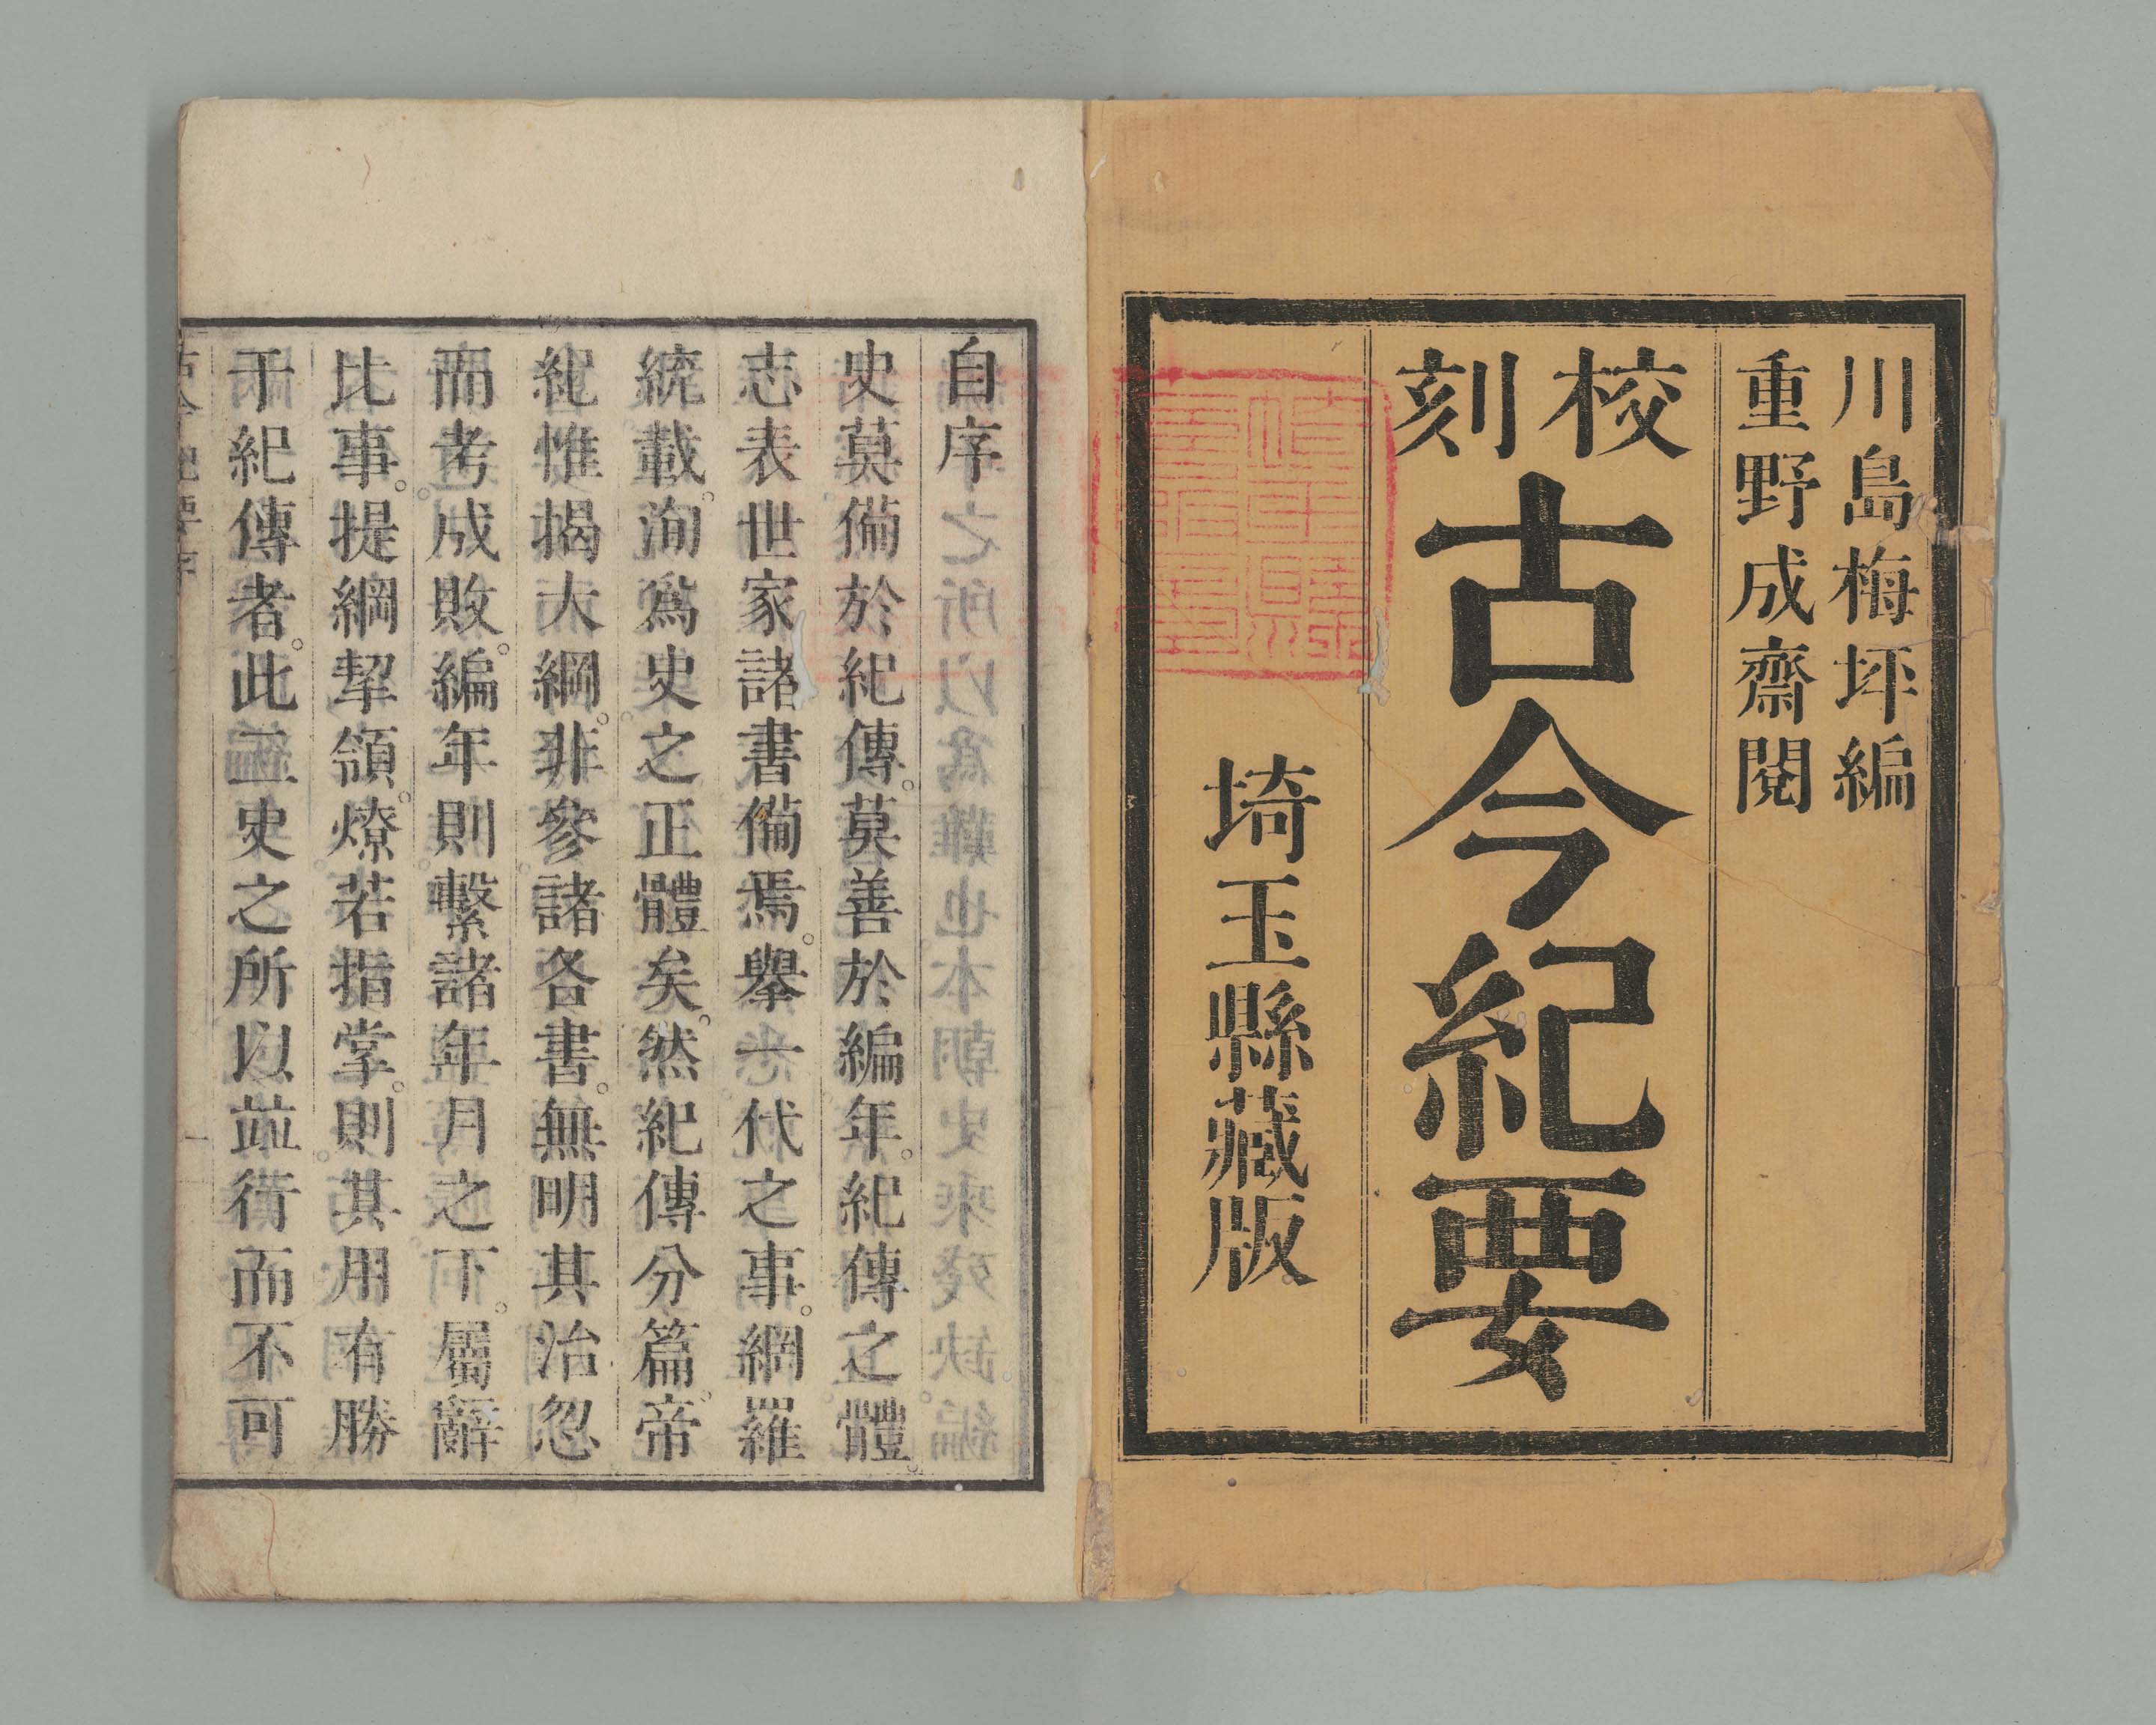 川島梅坪編
重野成齋閱
校刻
古今紀要
埼玉縣藏版
自序
史莫備於紀傳。莫善於編年。紀傳之體。
志表世家諸書備焉。擧一代之事。網羅
統載。洵爲史之正體矣。然紀傳分篇。帝
紀惟揭大綱。非參諸各書。無明其治忽
而考成敗。編年則繫諸年月之下。屬辭
比事。提綱挈領。燎若指掌。則其用有勝
于紀傳者。此二史之所以竝行而不可